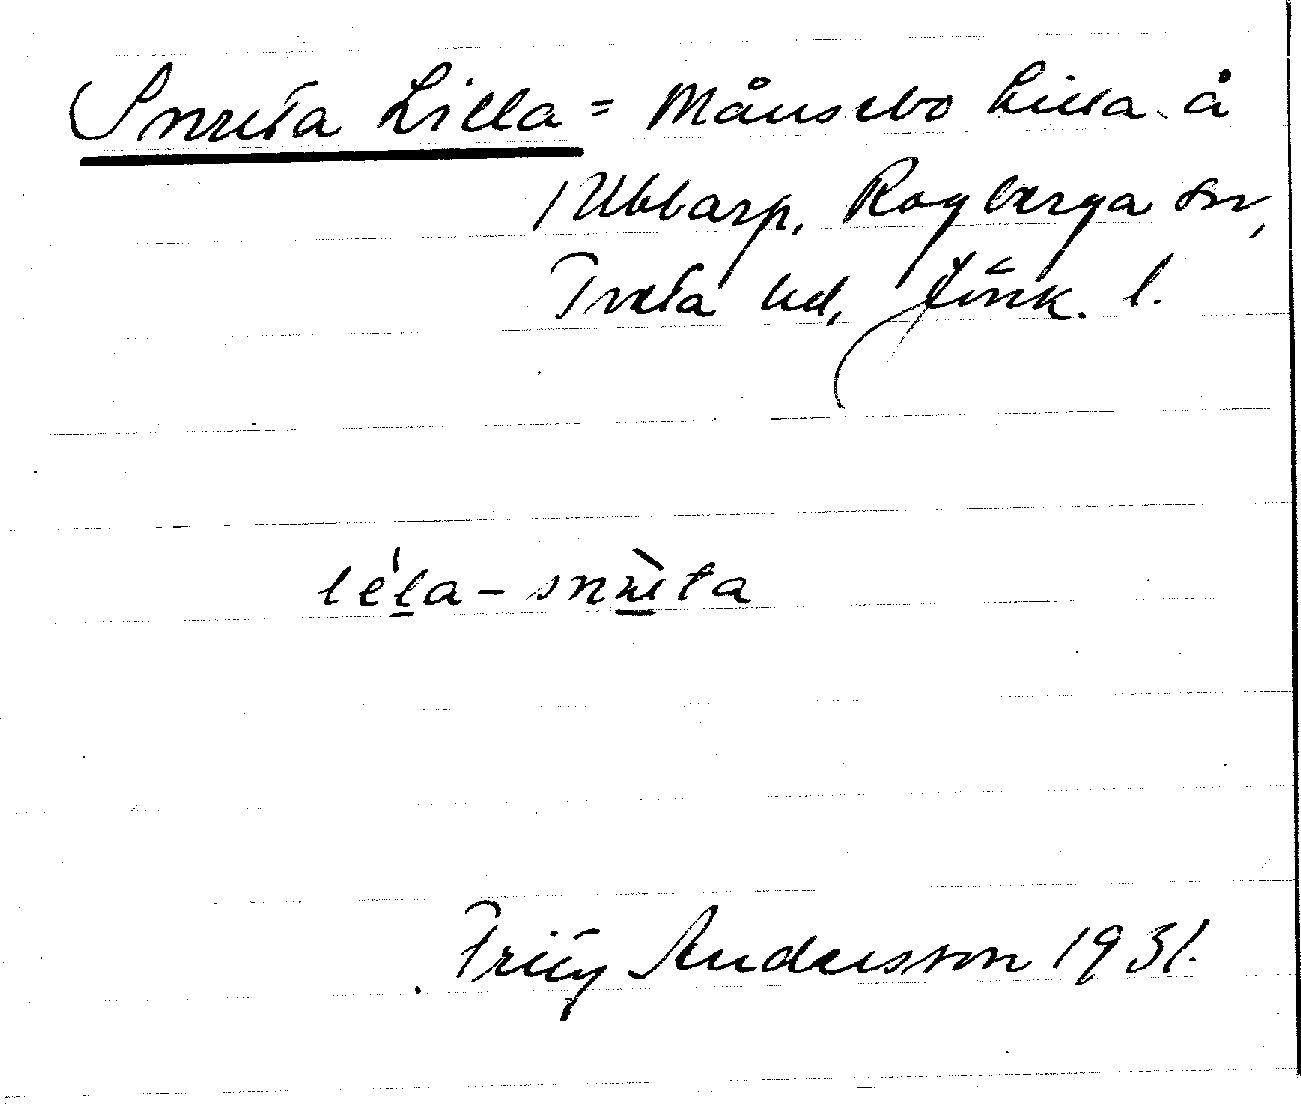 Snreta Lilla = Månsebo Lilla å
1 Ubbarp, Rogberga sn,
Tveta hd, Jönk. l.
Fritz Andersson 1931.